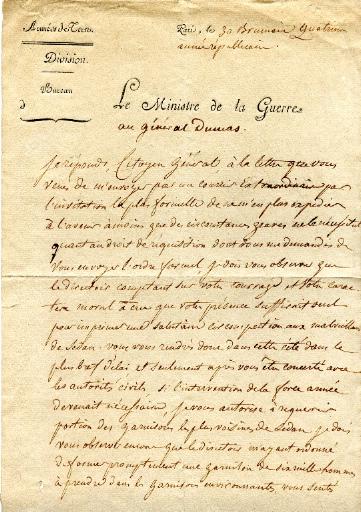 Armées de Terre.
Division.
Bureau
d
Paris, le 30 Brumaire Quatrieme
année républicaine.
Le Ministre de la Guerre
au général Dumas.
Je réponds, Citoyen Général à la lettre que vous
venez de m'envoyer par un courier Extraordinaire par
l'invitation la plus formelle de ne m'en plus expédier
à l'avenir à moins que des circonstances graves ne le
quant au droit de requisition dont vous me demandés de
vous envoyer l'ordre formel, je dois vous observer que
le directoire comptant sur votre courage et votre carac
tere moral a cru que votre présence suffirait seul
pour imprimer une salutaire aux malveillans
de Sedan: vous vous rendrés donc dans cette cité dans le
plus bref délai et seulement après vous être concerté avec
les autorités civils si l'intervention de la force armée
devenait nécéssaire, je vous autorise à requerir
portion des garnisons les plus voisines de Sedan je dois
vous observer encore que le directoire m'ayant ordonné
de former promptement une garnison de six mille hommes
à prendre dans les garnisons environnantes, vous sentés